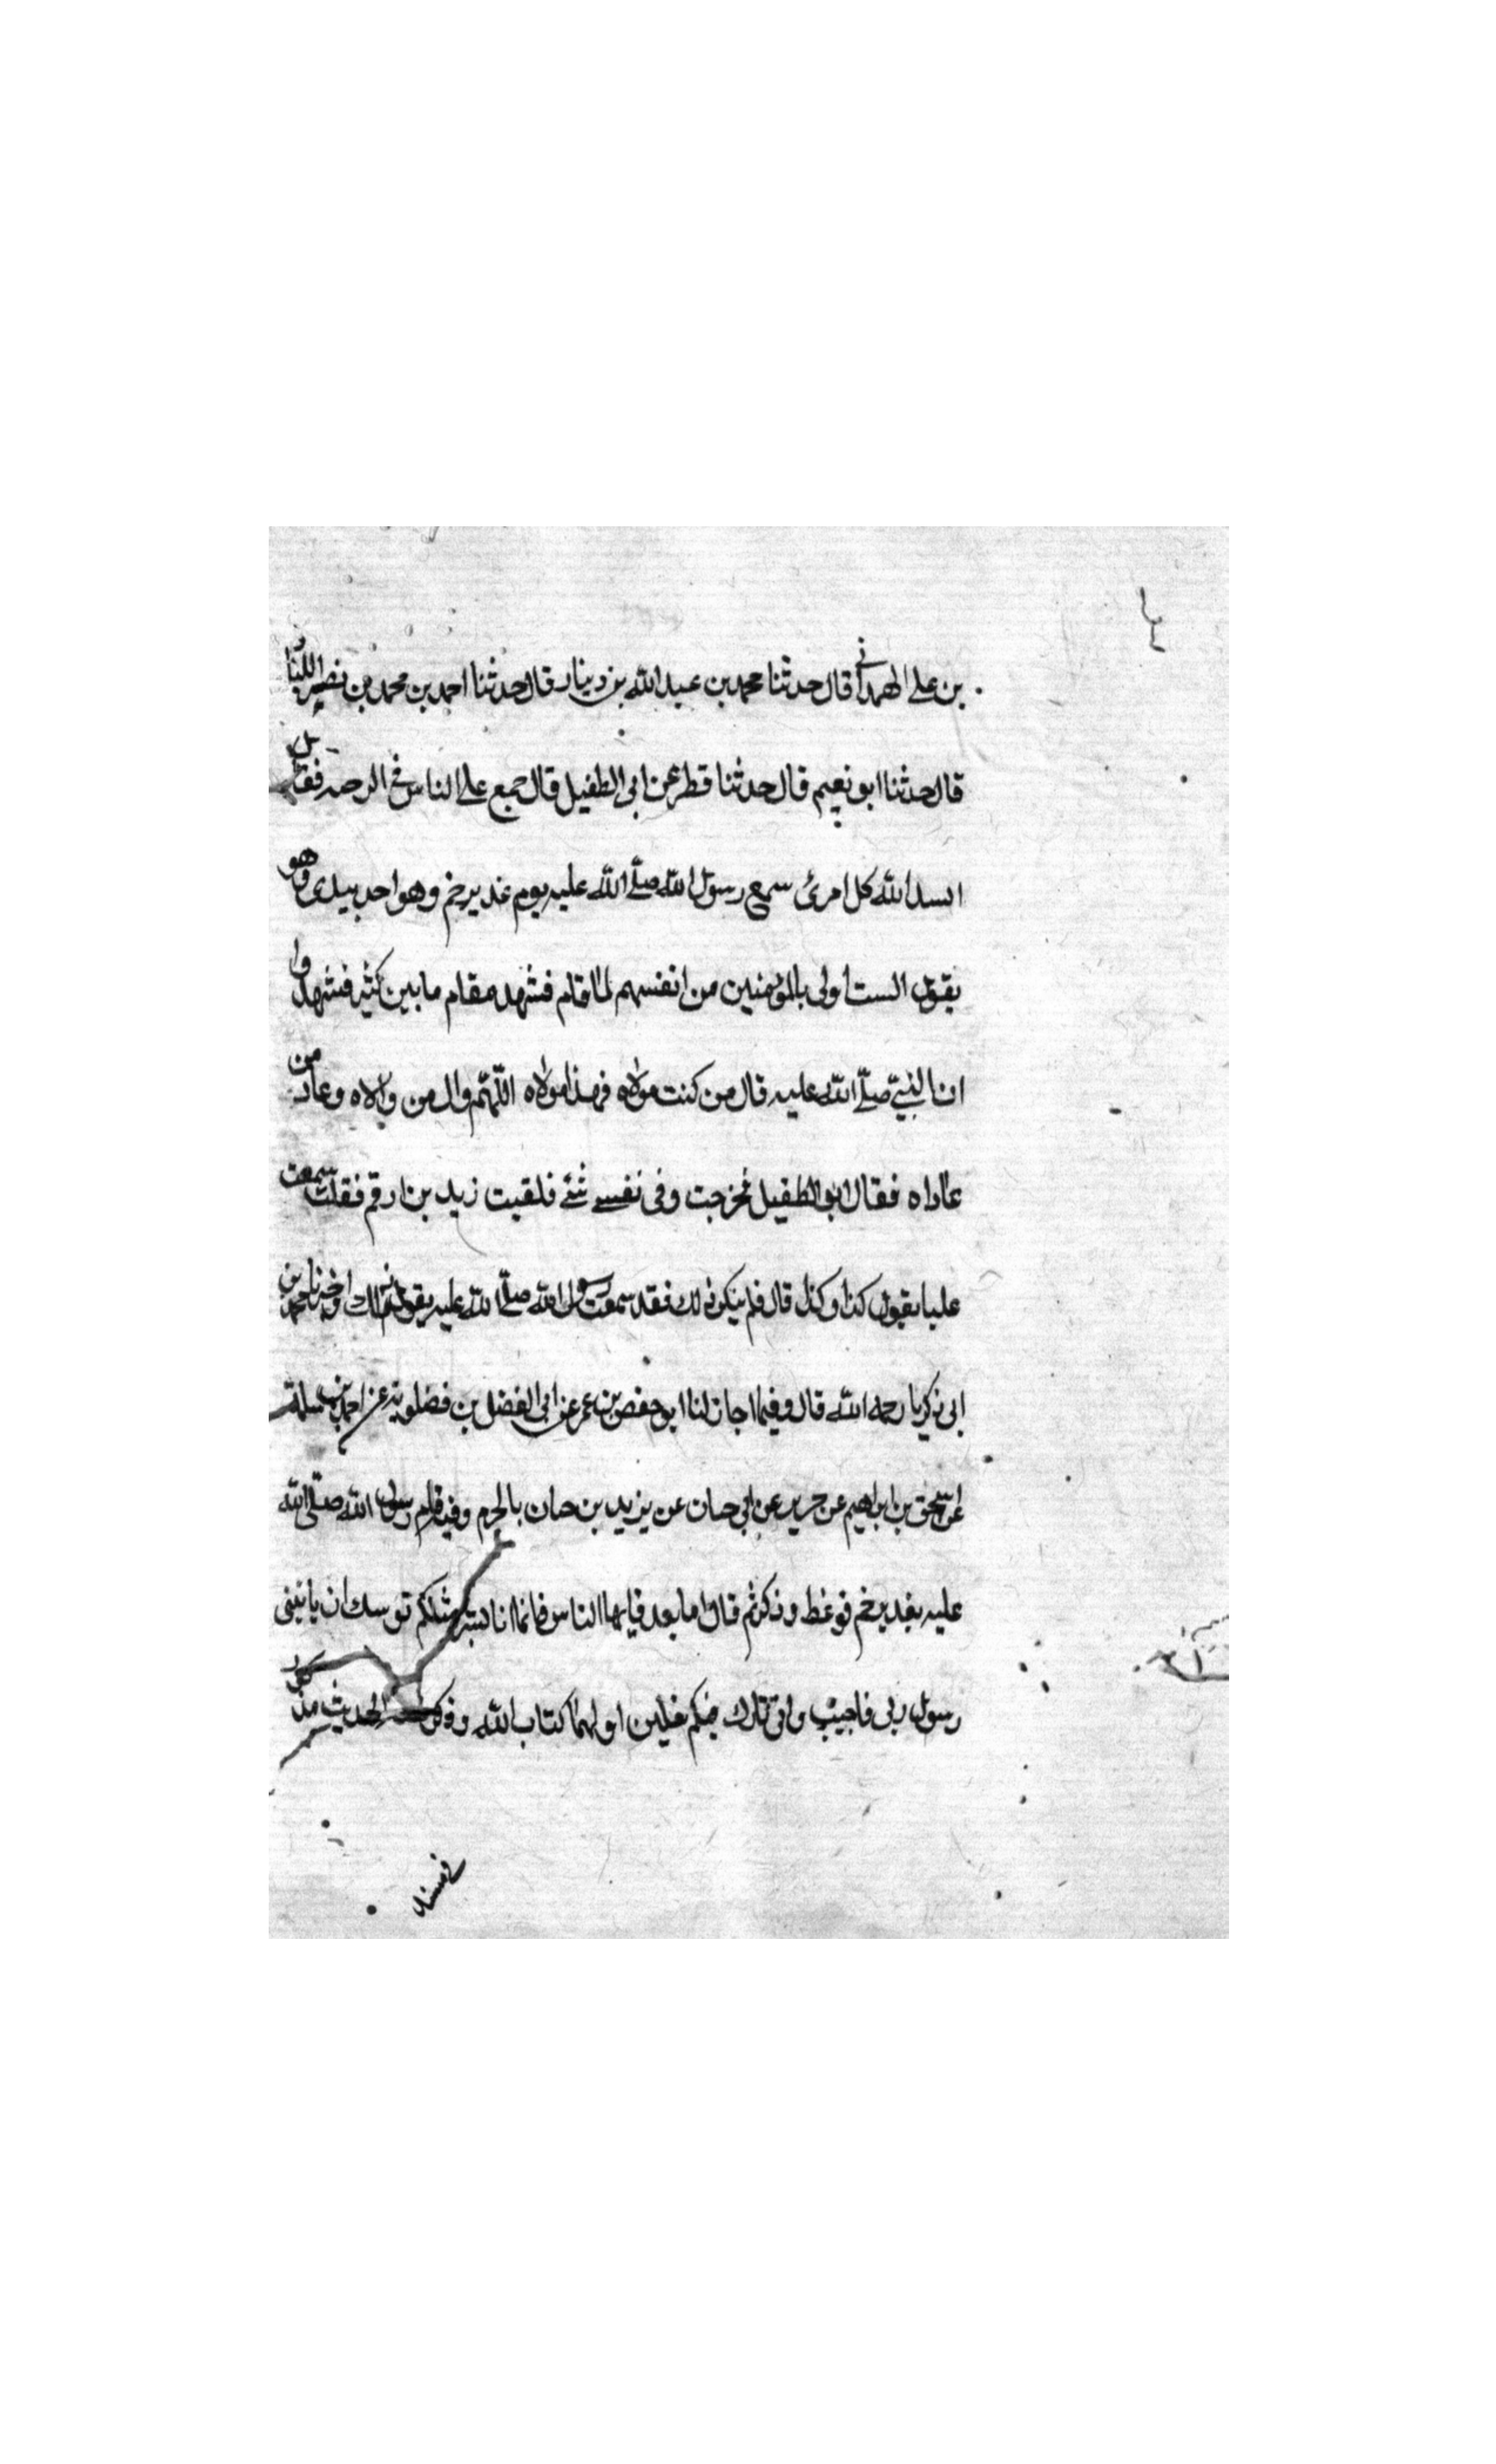 بن علي الهمداني قال حدثنا محمد بن عبد الله بن دينار قال حدثنا احمد بن محمد بن نصير
قال حدثنا ابو نعيم قال حدثنا قطر عن ابي الطفيل قال جمع علي الناس في الرحبه فقال
انسد الله كل امرئ سمع رسول الله صلى الله عليه يوم غدير خم وهو اخد بيدي وهو
يقول الست اولى بالمؤمنين من انفسهم لما قام فشهد فقام ما بين كثير فشهدوا
ان النبي صلى الله عليه قال من كنت مولاه فهذا مولاه اللهم وال من والاه وعاد من
عاداه فقال ابو الطفيل فخرجت وفى نفسي شئ فلقيت زيد بن ارقم فقلت سمعت
عليا يقول كذا وكذا قال فلم ينكر ذلك فقد سمعت رسول الله صلى الله عليه يقول ذلك واخبرنا محمد بن
ابي زكريا رحمه الله قال وفيما اجاز لنا ابو حفص بن عمر عن ابي الفضل بن فضلويه عن احمد بن سلمة
عن اسحق بن ابراهيم عن جرير عن ابي حسان عن يزيد بن حسان بالحرم وفينا قام رسول الله صلى الله
عليه بغدير خم فوعظ وذكر ثم قال اما بعد فيايها الناس فانما انا بشر مثلكم توسك ان ياتيني
رسول ربي فاجيب واني تارك فيكم ثقلين اولهما كتاب الله وذكر الحديث